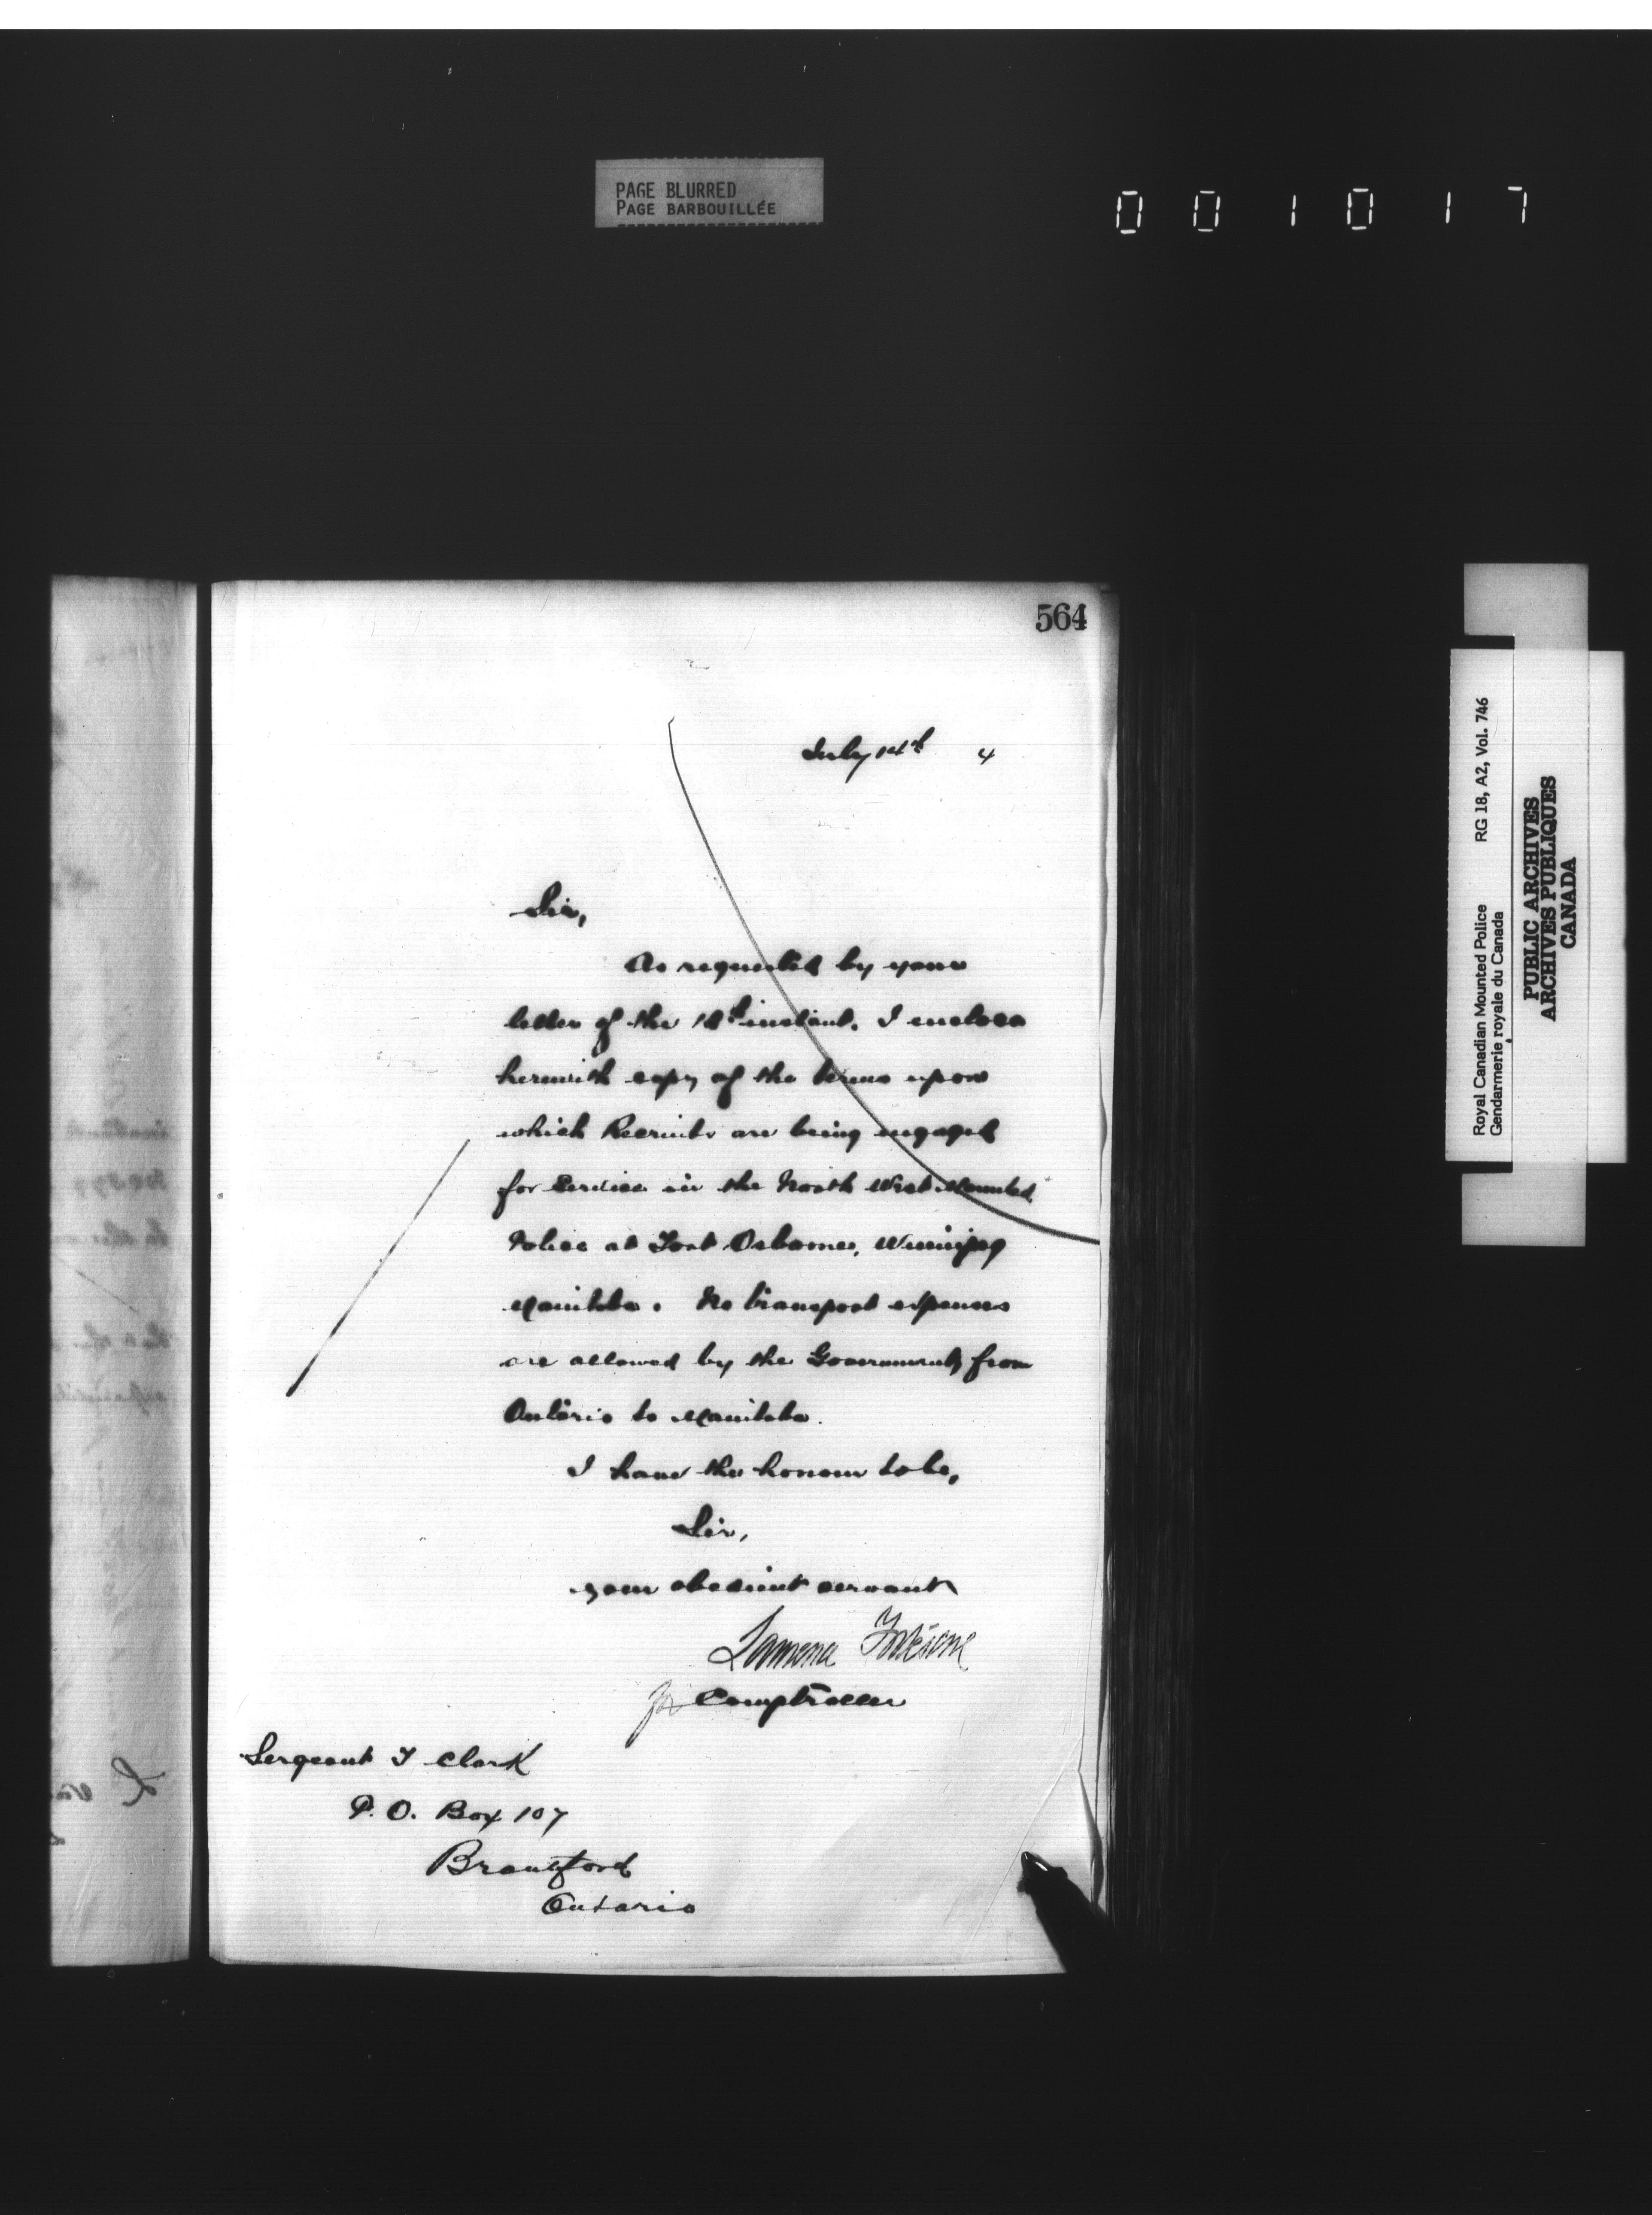 PAGE BLURRED
PAGE BARBOUILLÉE
001017
564
July 14th 4
Sir,
As requested by your
letter of the instant. I enclose
herewith copy of the terms upon
which Recruits are being engaged
for Service in the North West Mounted
Police at Fort Osborne, Winnipeg
Manitoba. No transport expenses
are allowed by the Government, from
Ontario to Manitoba.
I have the honour to be,
Sir,
your obedient servant
for Comptroller
Sergeant T Clark
P. O. Box 107
Brantford
Ontario
Royal Canadian Mounted Police RG 18, A2, Vol. 746
Gendarmerie royale du Canada
PUBLIC ARCHIVES
ARCHIVES PUBLIQUES
CANADA